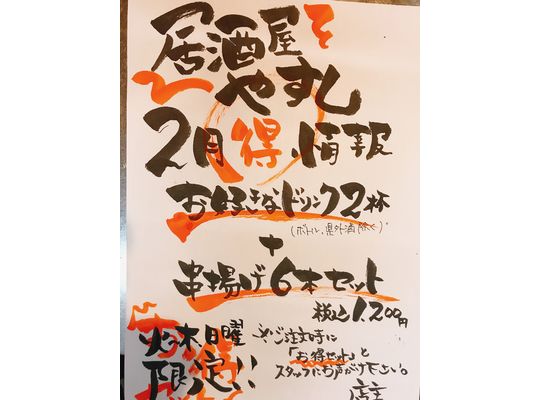 居酒屋
やすし
2月得情報
お好きなドリンク2杯
(ボトル、県外酒除く)
+
串揚げ6本セット
税込1,200円
火・木・日曜
限定!!
※ご注文時に
「お得セット」と
スタッフにお声がけ下さい。
店主